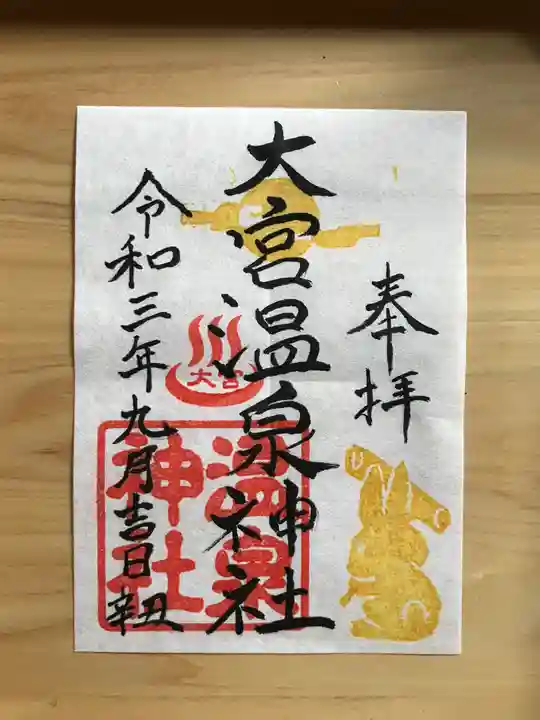 奉拝
大宮温泉神社
大宮
温泉
神社
令和三年九月吉日辛丑